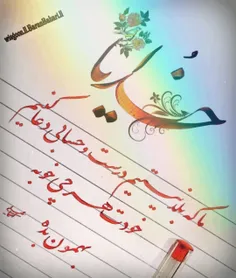 خدایا
ما که بلد نیستیم درست و حسابی دعا کنیم
خودت هر چی خوبه
بهمون بده